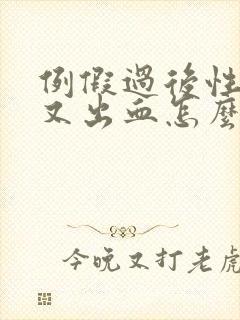 例假過後性
又出血怎麼
今晚又打老虎